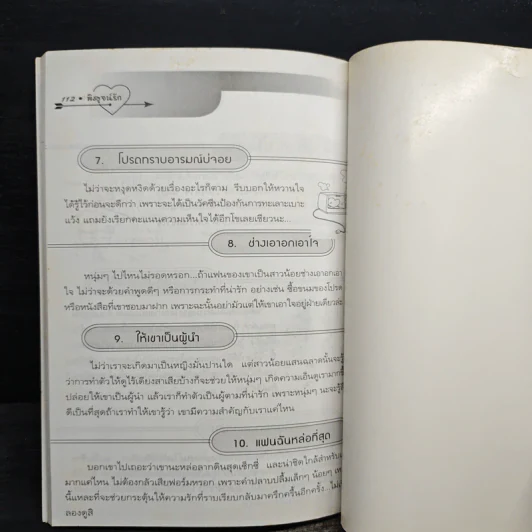 112 • พิสูจน์รัก
7. โปรดทราบอารมณ์บ่จอย
ไม่ว่าจะหงุดหงิดด้วยเรื่องอะไรก็ตาม รีบบอกให้หวานใจ
ได้รู้ไว้ก่อนจะดีกว่า เพราะจะได้เป็นวัคซีนป้องกันการทะเลาะเบาะ
แว้ง แถมยังเรียกคะแนนความเห็นใจได้อีกโขเลยเชียวนะ...
8. ช่างเอาอกเอาใจ
หนุ่มๆ ไปไหนไม่รอดหรอก...ถ้าแฟนของเขาเป็นสาวน้อยช่างเอาอกเอา
ใจ ไม่ว่าจะด้วยคำพูดดีๆ หรือการกระทำที่น่ารัก อย่างเช่น ซื้อขนมของโปรด
หรือหนังสือที่เขาชอบมาฝาก เพราะฉะนั้นอย่ามัวแต่ให้เขาเอาใจอยู่ฝ่ายเดียวล่ะ
9. ให้เขาเป็นผู้นำ
ไม่ว่าเราจะเกิดมาเป็นหญิงมั่นปานใด แต่สาวน้อยแสนฉลาดนั้นจะรู้
ว่าการทำตัวให้ดูไร้เดียงสาเสียบ้างก็จะช่วยให้หนุ่มๆ เกิดความเอ็นดูเรามากขึ้น
ปล่อยให้เขาเป็นผู้นำ แล้วเราก็ทำตัวเป็นผู้ตามที่น่ารัก เพราะหนุ่มๆ นะจะรู้สึ
ดีเป็นที่สุดถ้าเราทำให้เขารู้ว่า เขามีความสำคัญกับเราแค่ไหน
10. แฟนฉันหล่อที่สุด
บอกเขาไปเถอะว่าเขานะหล่อลากดินสุดเซ็กซี่ และน่าชิดใกล้สำหรับ
มากแค่ไหน ไม่ต้องกลัวเสียฟอร์มหรอก เพราะคำปลาบปลื้มเล็กๆ น้อยๆ เห
นี้แหละที่จะช่วยกระตุ้นให้ความรักที่ราบเรียบกลับมาครึกครื้นอีกครั้ง
ลองดูสิ